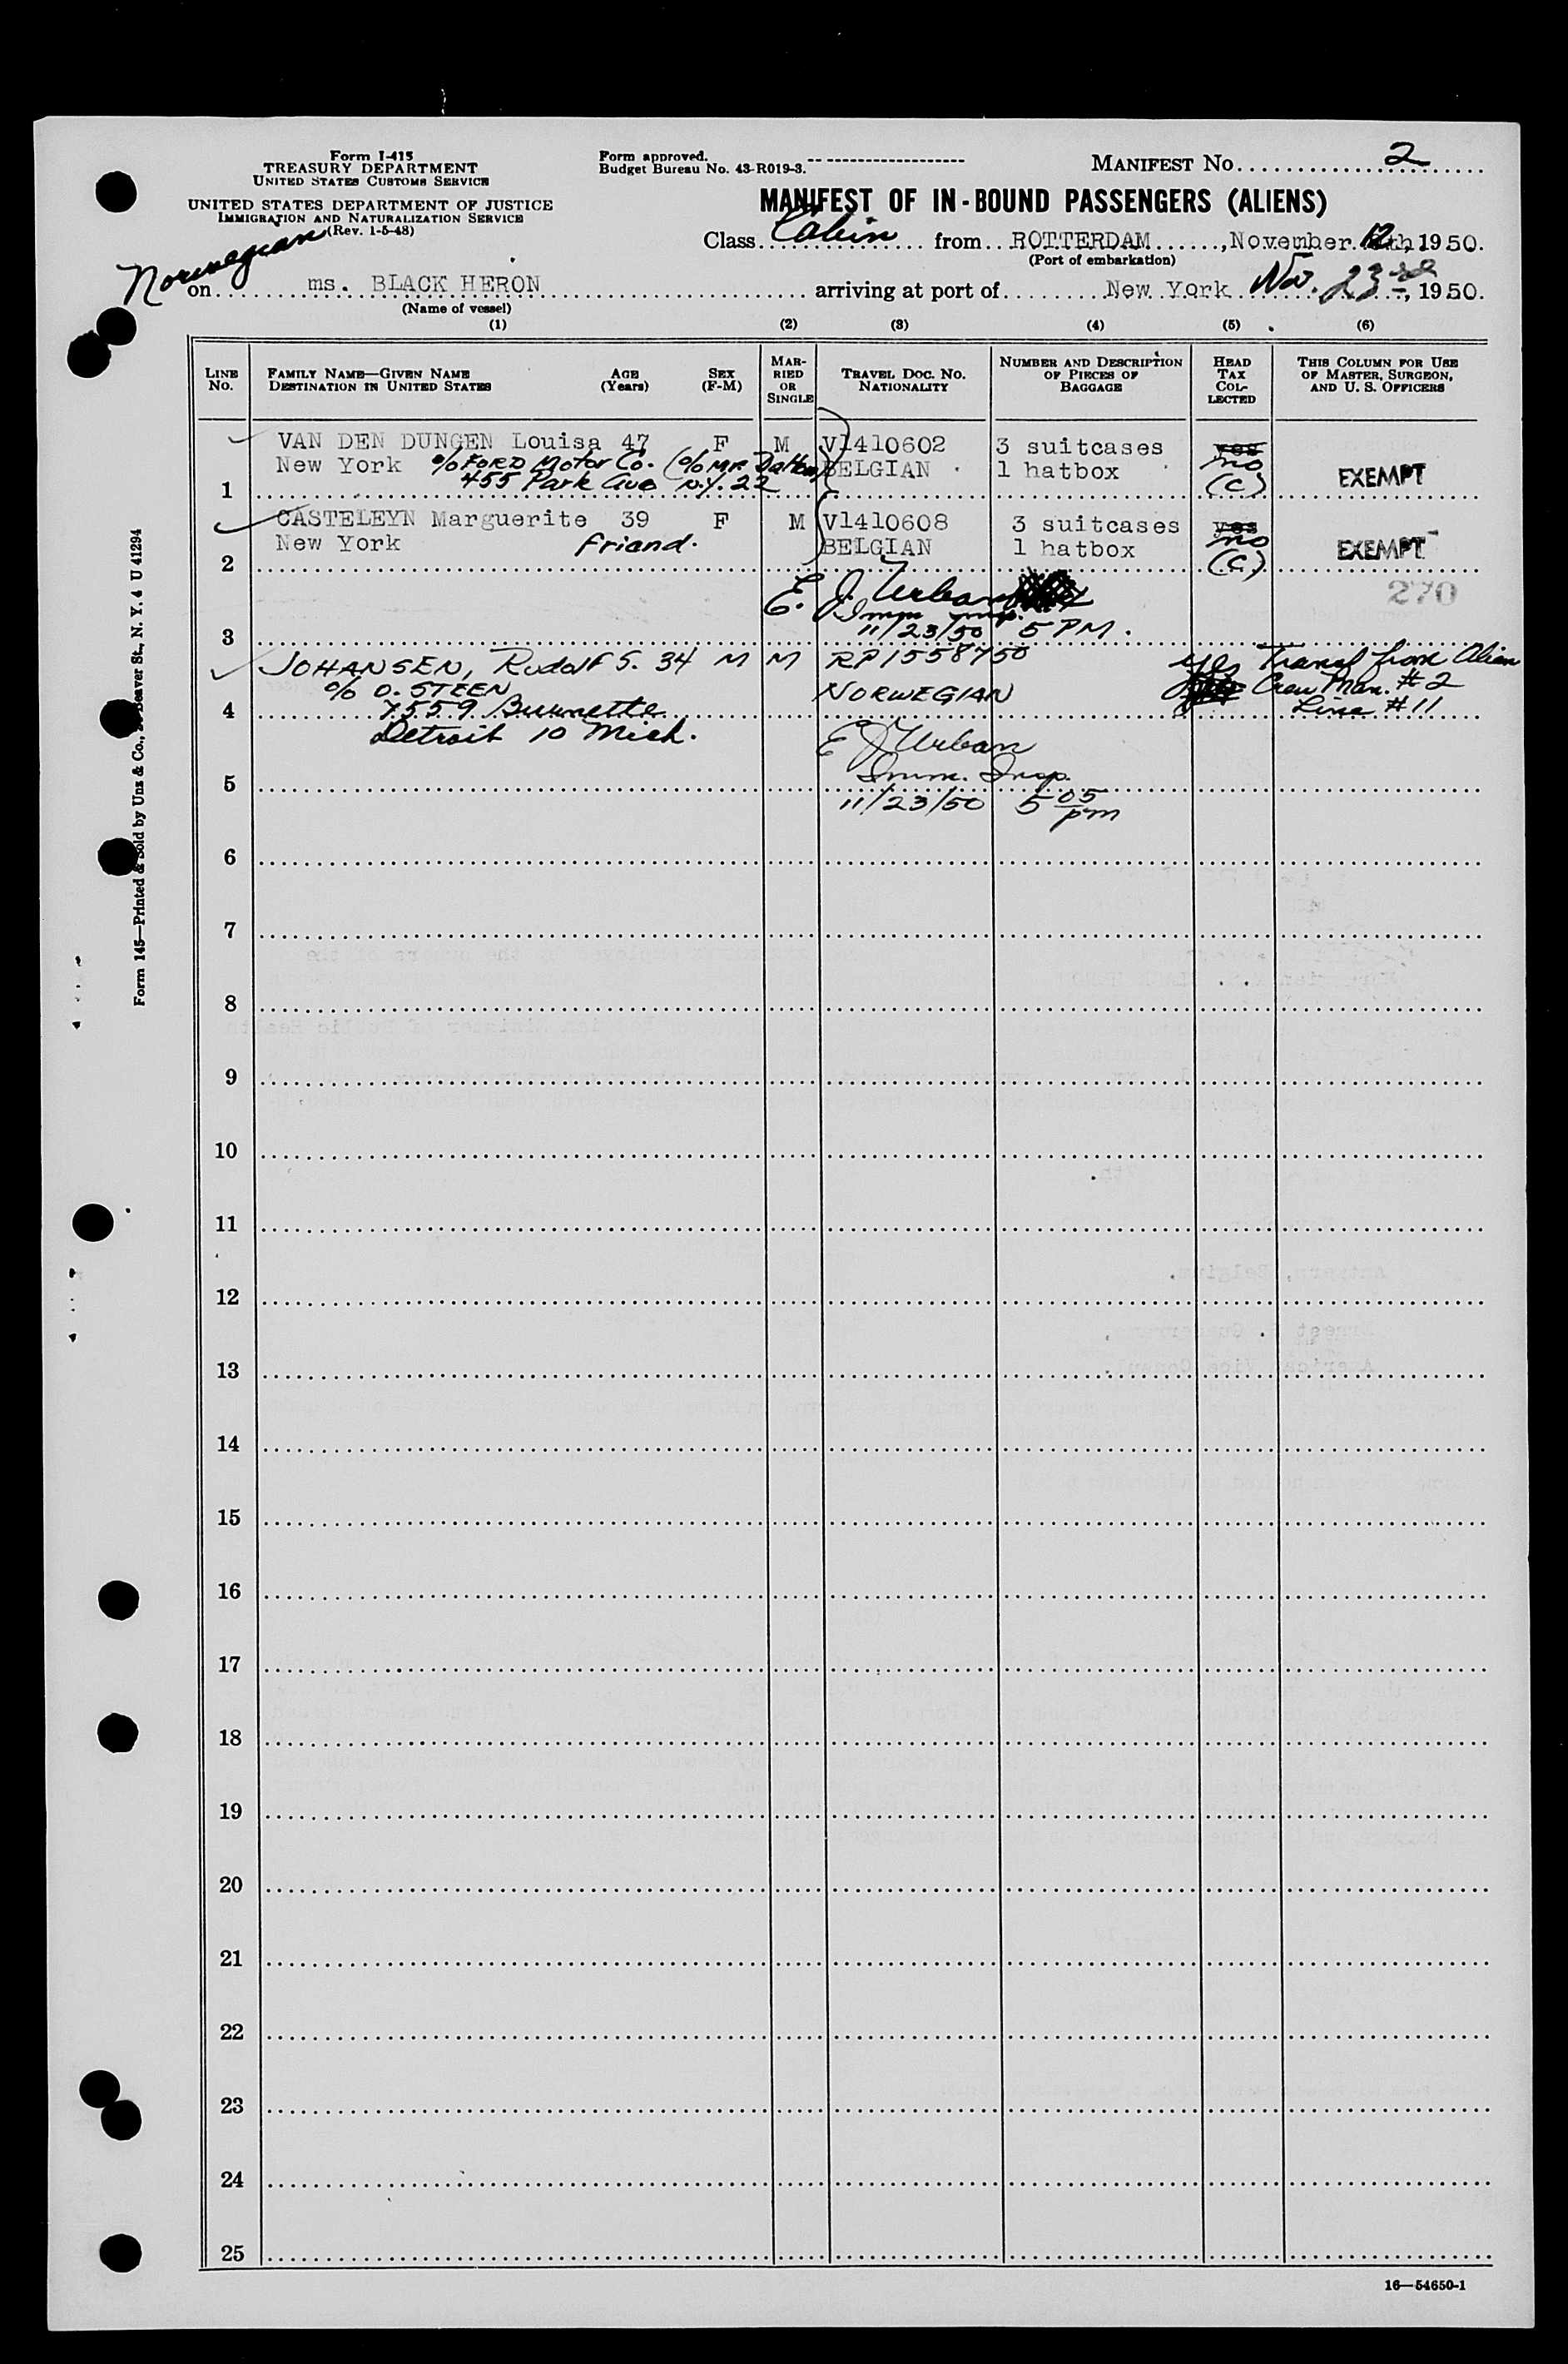 Form I-415
TREASURY DEPARTMENT
UNITED STATES CUSTOMS SERVICE
UNITED STATES DEPARTMENT OF JUSTICE
IMMIGRATION AND NATURALIZATION SERVICE
(Rev. 1-5-48)
Form approved.
Budget Bureau No. 43-R019-3.
MANIFEST No. 2
MANIFEST OF IN-BOUND PASSENGERS (ALIENS)
Class Cabin from ROTTERDAM, November 12th, 1950.
(Port of embarkation)
Norwegian
on ms. BLACK HERON arriving at port of New York Nov. 23rd, 1950.
(Name of vessel)
(1) (2) (3) (4) (5) (6)
LINE No.
FAMILY NAME—GIVEN NAME AGE (Years) SEX (F-M)
DESTINATION IN UNITED STATES
MARRIED OR SINGLE
TRAVEL DOC. No. NATIONALITY
NUMBER AND DESCRIPTION OF PIECES OF BAGGAGE
HEAD TAX COLLECTED
THIS COLUMN FOR USE OF MASTER, SURGEON, AND U. S. OFFICERS
VAN DEN DUNGEN Louisa 47 F M V1410602 3 suitcases yes
New York c/o FORD Motor Co. (c/o Mr. Dalton) BELGIAN 1 hatbox no EXEMPT
1 455 Park Ave N.Y. 22 (C)
CASTELEYN Marguerite 39 F M V1410608 3 suitcases yes
New York friend. BELGIAN 1 hatbox no EXEMPT
2 (C)
270
E. J. Urban
Imm Insp.
3 11/23/50 5 PM.
JOHANSEN, Rudolf S. 34 M M RP1558750 yes Transf from Alien
c/o O. STEEN NORWEGIAN Crew Man. #2
4 7559 Burnette Line #11
Detroit 10 Mich.
E J Urban
Imm. Insp.
5
11/23/50 5 05 pm
6
7
8
9
10
11
12
13
14
15
16
17
18
19
20
21
22
23
24
25
16—54650-1
Form 145—Printed & Sold by Unz & Co., Beaver St., N. Y. 4 U 41294